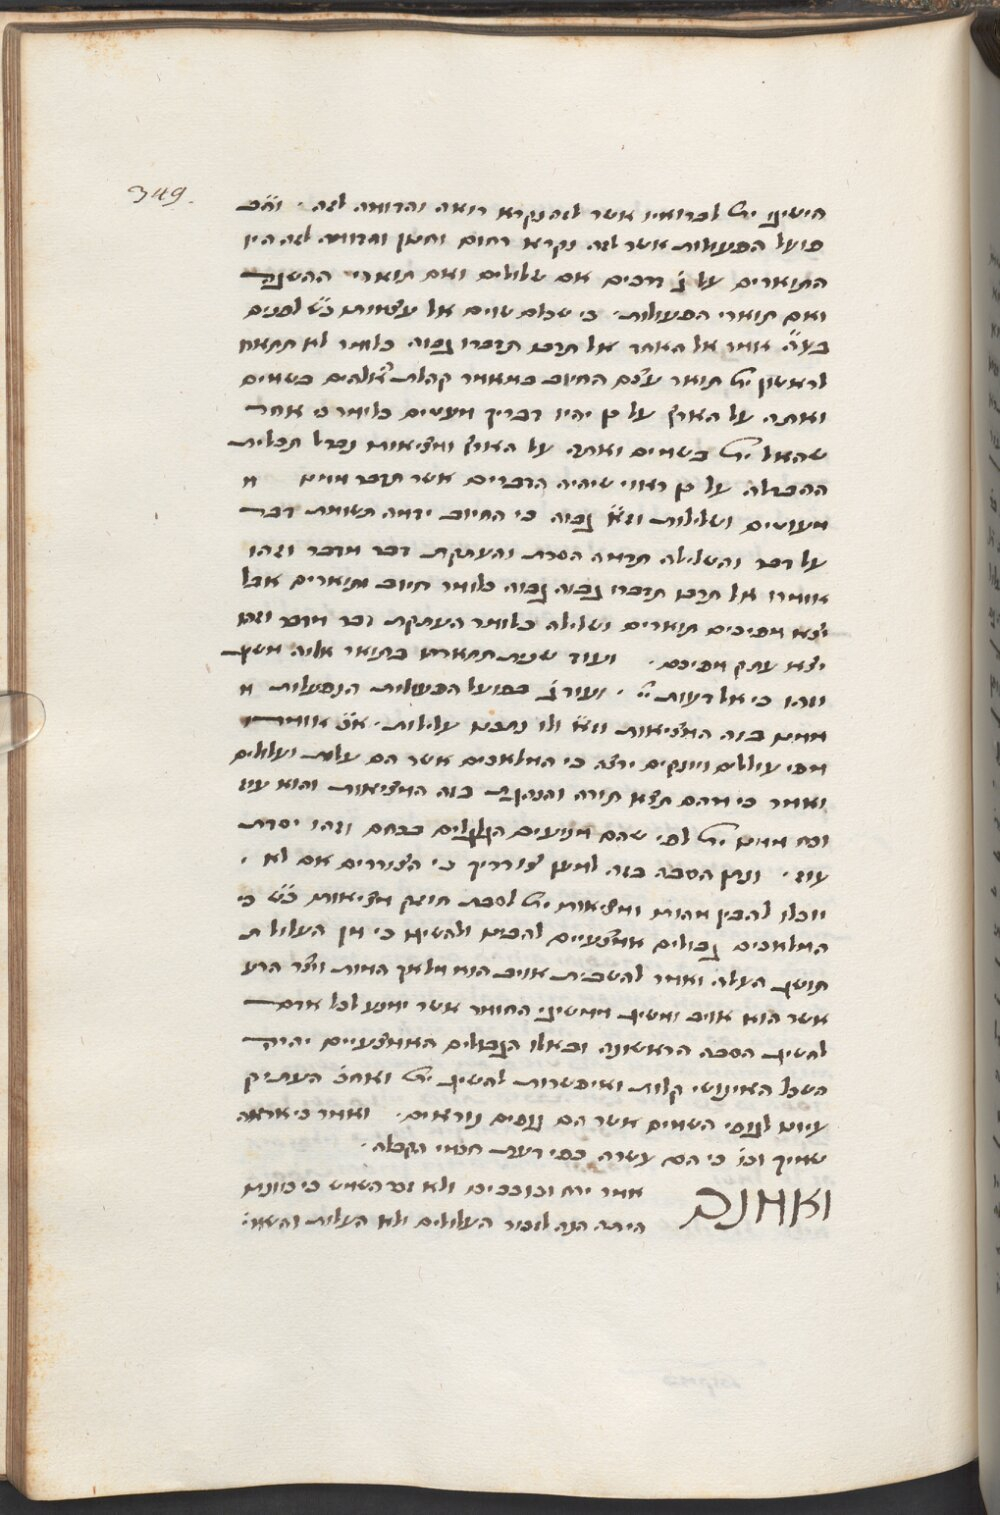 349.
השיגנו ית' לברואיו אשר לזה נקרא רואה והדומה לזה . וג"כ
פועל הפעולות אשר לזה נקרא רחום וחנון והדומה לזה היו
התוארים על ג' דרכים אם שלולים ואם תוארי ההשגה
ואם תוארי הפעולות . כי שכלם שוים אל עצמות כ"ש לפנים
בע"ה אומר אל האחר אל תרבו תדברו גבוה כלומר לא תתאר
לראשון ית' תואר עצם החיוב כמאמר קהלת האלהים בשמים
ואתה על הארץ על כן יהיו דבריך מעטים כלומר כי אחר
שהאל ית' בשמים ואתה על הארץ ומציאותו נבדל תכלית
ההבדלה על כן ראוי שיהיה הדברים אשר תדבר ממנו
מעטים ושלילות וז"א גבוה כי החיוב ידמה תשומת דבר
על דבר והשלילה תדמה הסרת והעתקת דבר מדבר וזהו
אומרו אל תרבו תדברו גבוה גבוה כלומר חיוב תוארים אבל
יצא מפיכם תוארים ושלילה כלומר העתקת דבר מדבר וזהו
יצא עתק מפיכם . ועוד שנית תתארהו בתואר אליה
וזהו כי אל דעות יי' . ועוד בפועל הפעולות הנפעלות
ממנו בזה המציאות וז"א ולו נתכנו עלילות . אומרו
מפי עוללים ויונקים ירצה כי המלאכים אשר הם עלות ועלולים
ואמר כי מהם תצא תורה והנהגה בזה המציאות והוא עוז
וכח ממנו ית' לפי שהם מניעים הגלגלים בכחם וזהו יסדת
עוז . ונתן הסבה בזה למען צורריך כי הצוררים אם לא
יוכלו להבין מהות ומציאות ית' לסבת חוזק מציאותו כ"ש כי
המלאכים גבולים אמצעיים להבינו ולהשיגו כי מן העלולת
תושג העלה ואמר להשבית אויב הוא מלאך המות ויצר הרע
אשר הוא אויב ומשיג ממשיגי החומר אשר ימנע לכל אדם
להשיג הסבה הראשונה ובאלו הגבולים האמצעיים יהיה
השכל האנושי קלות ואיפשרות להשיג ית' ואח"כ העתיק
עיונו לגופי השמים אשר הם גופים נוראים . ואמר כי אראה
שמיך וכו' כי הם עשרה כפי דעת חכמי הקבלה .
ואמנם אמר ירח וכוכבים ולא זכר השמש כי כוונתו
היתה הנה לזכור העלולים ולא העלות והשמ'